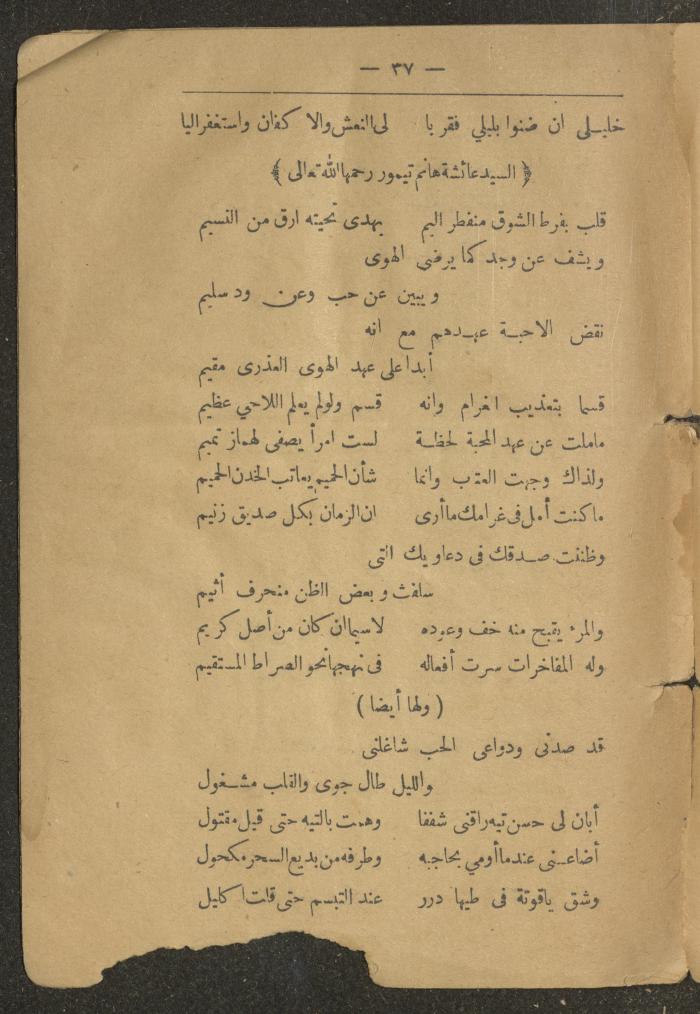 — ٣٧ —
خليـلى ان ضنوا بليلي فقر با لى النعش والا كفان واستغفراليا
﴿ السيدعائشة هانم تيمور رحمها الله تعالى ﴾
قلب بفرط الشوق منفطر اليم يهدى تحيته ارق من النسيم
ويشف عن وجد كما يرضى الهوى
ويبين عن حب وعن ود سليم
نقض الاحبـة عهـدهم مع انه
أبدا على عهد الهوى العذرى مقيم
قسما بتعذيب الغرام وانه قسم ولولم يعلم اللاحي عظيم
ماملت عن عهد المحبة لحظـة لست امرأ يصغى لهماز نميم
ولذاك وجهت العتب وانما شأن الحميم يعاتب الخدن الحميم
ماكنت أمل فى غرامك ماأرى ان الزمان بكل صديق زنيم
وظننت صـدقك فى دعاويك التى
سلفت وبعض الظن منحرف أثيم
والمرء يقبح منه خف وعوده لاسيما ان كان من أصل كريم
وله المفاخرات سرت أفعاله فى نهجها نحو الصراط المستقيم
( ولها أيضا )
قد صدنى ودواعى الحب شاغلنى
والليل طال جوى والقلب مشـغول
أبان لى حسن تيه راقنى شففا وهمت بالتيه حتى قيل مقتول
أضاعـنى عندماأومي بحاجبه وطرفه من بديع السحر مكحول
وشق ياقوتة فى طيها درر عند التبسم حتى قلت اكايل